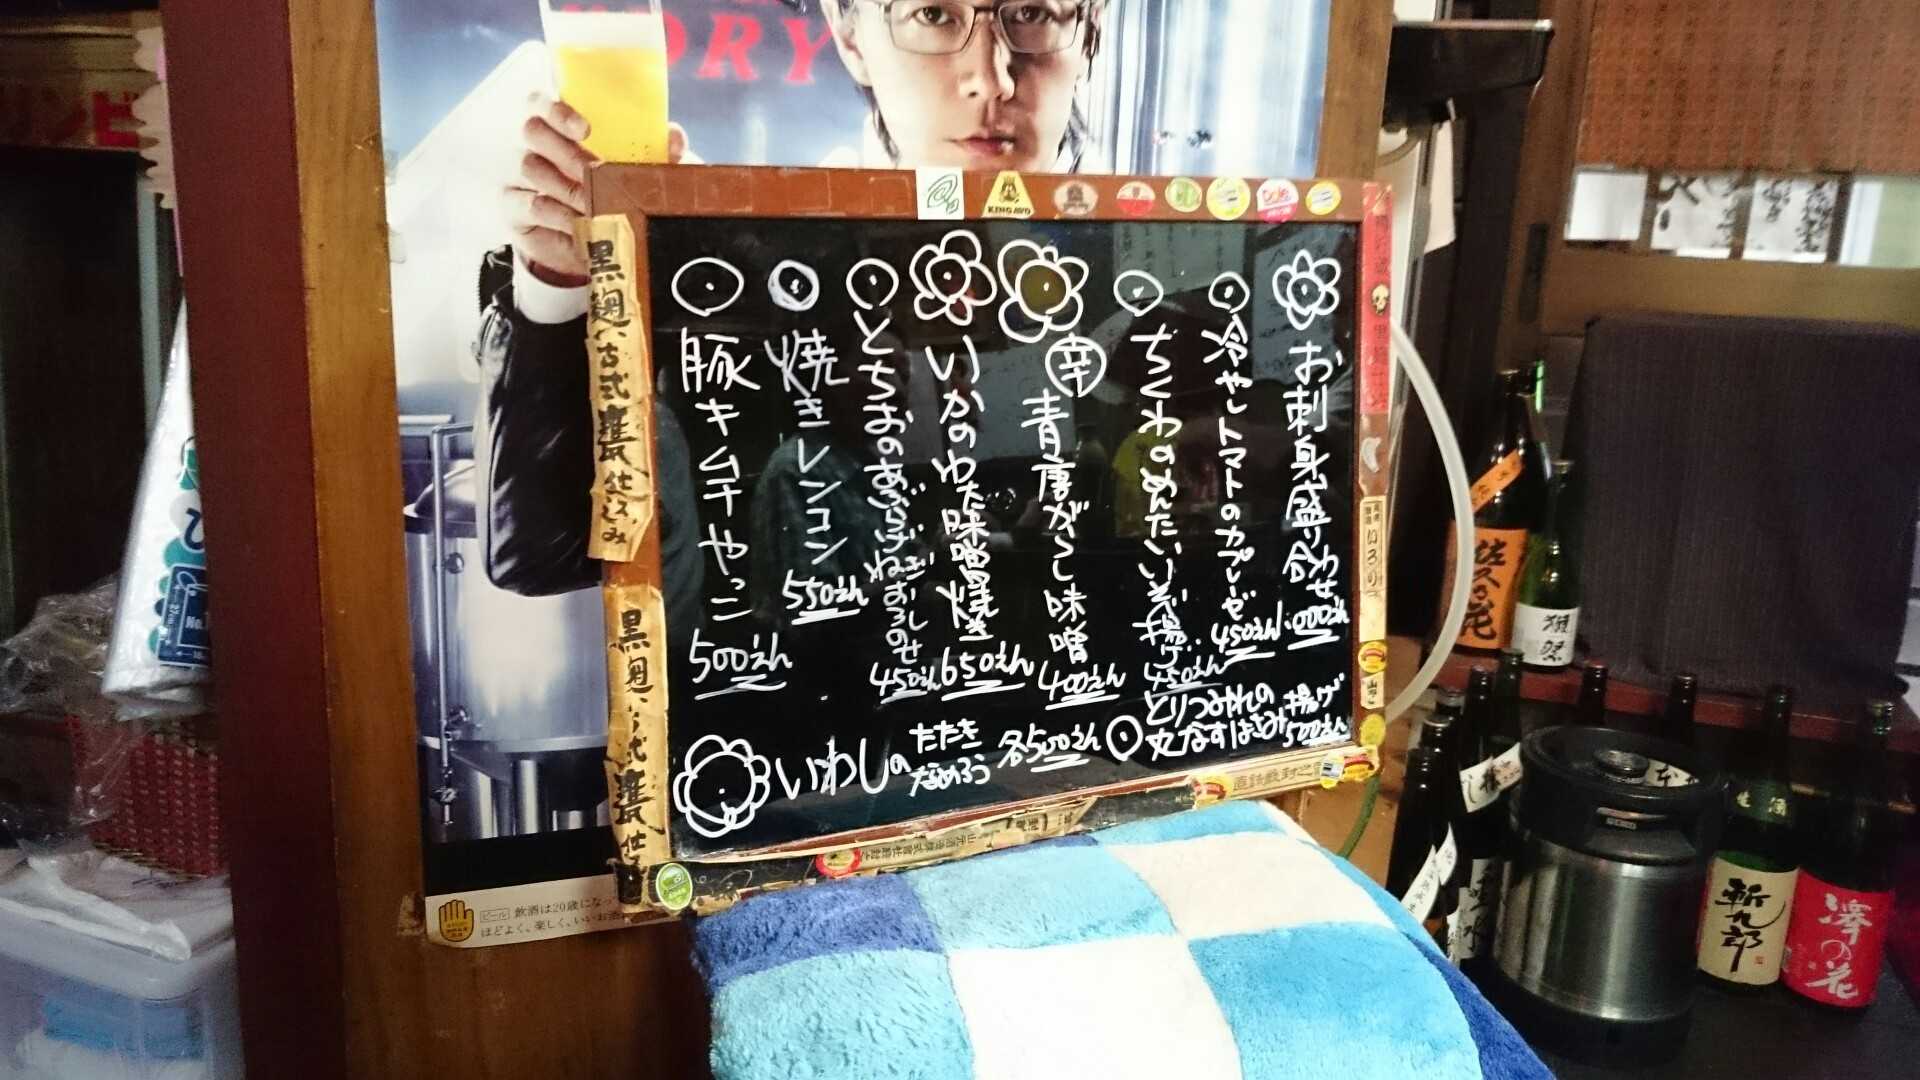 DRY
お刺身盛り合わせ 1.000えん
冷やしトマトのカプレーゼ 450えん
ちくわのめんたいいそべ揚げ 450えん
辛 青唐がらし味噌 400えん
いかのわた味噌焼き 650えん
とちおのあぶらげねぎおろしのせ 450えん
焼きレンコン 550えん
豚キムチやっこ 500えん
いわしの たたき なめろう 各500えん
とりつみれの
丸なすはさみ揚げ 500えん
黒麹・古式甕仕込み
黒麹・古式甕仕込み
KING AVO
Dole
ビール 飲酒は20歳になっ
ほどよく、楽しく、いいお酒
佐久の花
獺祭
斬九郎
澤の花